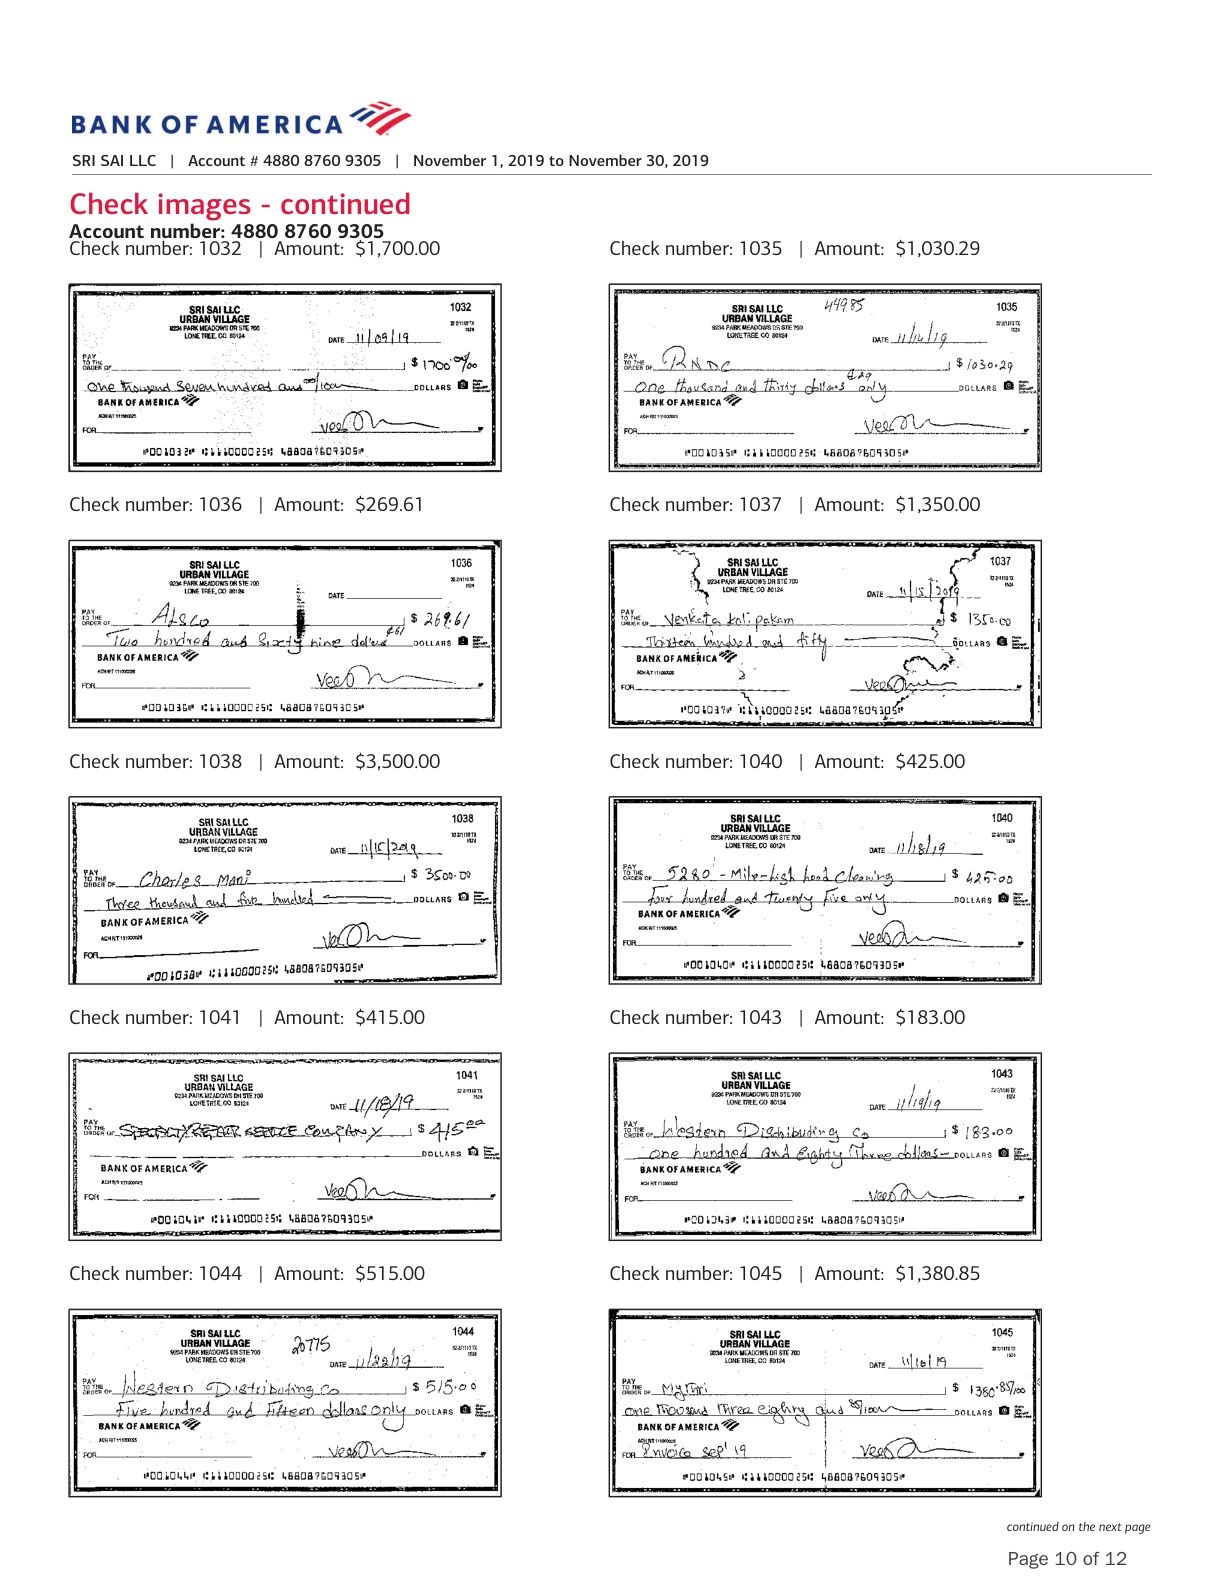 BANK OF AMERICA
SRI SAI LLC | Account # 4880 8760 9305 | November 1, 2019 to November 30, 2019
Check images - continued
Account number: 4880 8760 9305
Check number: 1032 | Amount: $1,700.00
SRI SAI LLC
URBAN VILLAGE
9234 PARK MEADOWS DR STE 700
LONE TREE, CO 80124
1032
DATE 11/09/19
PAY TO THE ORDER OF
$ 1700 00/00
One thousand Seven hundred and 00/100 DOLLARS
BANK OF AMERICA
ACH R/T 111000025
FOR
⑈001032⑈ ⑆111000025⑆ 488087609305⑈
Check number: 1035 | Amount: $1,030.29
SRI SAI LLC
URBAN VILLAGE
9234 PARK MEADOWS DR STE 700
LONE TREE, CO 80124
44985
1035
DATE 11/14/19
PAY TO THE ORDER OF RNDC
$ 1030.29
One thousand and thirty dollars only DOLLARS
BANK OF AMERICA
ACH R/T 111000025
FOR
⑈001035⑈ ⑆111000025⑆ 488087609305⑈
Check number: 1036 | Amount: $269.61
SRI SAI LLC
URBAN VILLAGE
9234 PARK MEADOWS DR STE 700
LONE TREE, CO 80124
1036
DATE
PAY TO THE ORDER OF Alsco
$ 269.61
Two hundred and Sixty nine dollars DOLLARS
BANK OF AMERICA
ACH R/T 111000025
FOR
⑈001036⑈ ⑆111000025⑆ 488087609305⑈
Check number: 1037 | Amount: $1,350.00
SRI SAI LLC
URBAN VILLAGE
9234 PARK MEADOWS DR STE 700
LONE TREE, CO 80124
1037
DATE 11/15/2019
PAY TO THE ORDER OF Venkata Kolipakam
$ 1350.00
Thirteen hundred and fifty DOLLARS
BANK OF AMERICA
ACH R/T 111000025
FOR
⑈001037⑈ ⑆111000025⑆ 488087609305⑈
Check number: 1038 | Amount: $3,500.00
SRI SAI LLC
URBAN VILLAGE
9234 PARK MEADOWS DR STE 700
LONE TREE, CO 80124
1038
DATE 11/15/2019
PAY TO THE ORDER OF Charles Mani
$ 3500.00
Three thousand and five hundred DOLLARS
BANK OF AMERICA
ACH R/T 111000025
FOR
⑈001038⑈ ⑆111000025⑆ 488087609305⑈
Check number: 1040 | Amount: $425.00
SRI SAI LLC
URBAN VILLAGE
9234 PARK MEADOWS DR STE 700
LONE TREE, CO 80124
1040
DATE 11/18/19
PAY TO THE ORDER OF 5280 - Mile-high hood Cleaning
$ 425.00
four hundred and twenty five only DOLLARS
BANK OF AMERICA
ACH R/T 111000025
FOR
⑈001040⑈ ⑆111000025⑆ 488087609305⑈
Check number: 1041 | Amount: $415.00
SRI SAI LLC
URBAN VILLAGE
9234 PARK MEADOWS DR STE 700
LONE TREE, CO 80124
1041
DATE 11/18/19
PAY TO THE ORDER OF COMPANY
$ 415 00
DOLLARS
BANK OF AMERICA
ACH R/T 111000025
FOR
⑈001041⑈ ⑆111000025⑆ 488087609305⑈
Check number: 1043 | Amount: $183.00
SRI SAI LLC
URBAN VILLAGE
9234 PARK MEADOWS DR STE 700
LONE TREE, CO 80124
1043
DATE 11/19/19
PAY TO THE ORDER OF Western Distributing Co
$ 183.00
One hundred and Eighty Three dollars DOLLARS
BANK OF AMERICA
ACH R/T 111000025
FOR
⑈001043⑈ ⑆111000025⑆ 488087609305⑈
Check number: 1044 | Amount: $515.00
SRI SAI LLC
URBAN VILLAGE
9234 PARK MEADOWS DR STE 700
LONE TREE, CO 80124
20775
1044
DATE 11/22/19
PAY TO THE ORDER OF Western Distributing Co
$ 515.00
Five hundred and Fifteen dollars only DOLLARS
BANK OF AMERICA
ACH R/T 111000025
FOR
⑈001044⑈ ⑆111000025⑆ 488087609305⑈
Check number: 1045 | Amount: $1,380.85
SRI SAI LLC
URBAN VILLAGE
9234 PARK MEADOWS DR STE 700
LONE TREE, CO 80124
1045
DATE 11/16/19
PAY TO THE ORDER OF Mythri
$ 1380.85/100
One thousand Three eighty and 85/100 DOLLARS
BANK OF AMERICA
ACH R/T 111000025
FOR Invoice Sep' 19
⑈001045⑈ ⑆111000025⑆ 488087609305⑈
continued on the next page
Page 10 of 12